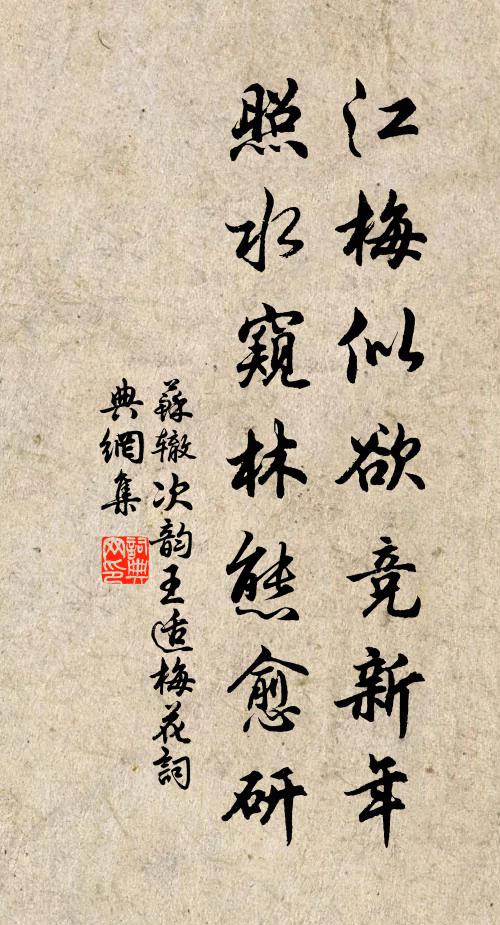 江梅似欲竞新年
照水窥林態愈研
蘇辙次韵王适梅花詞
典網集
詞典
网印